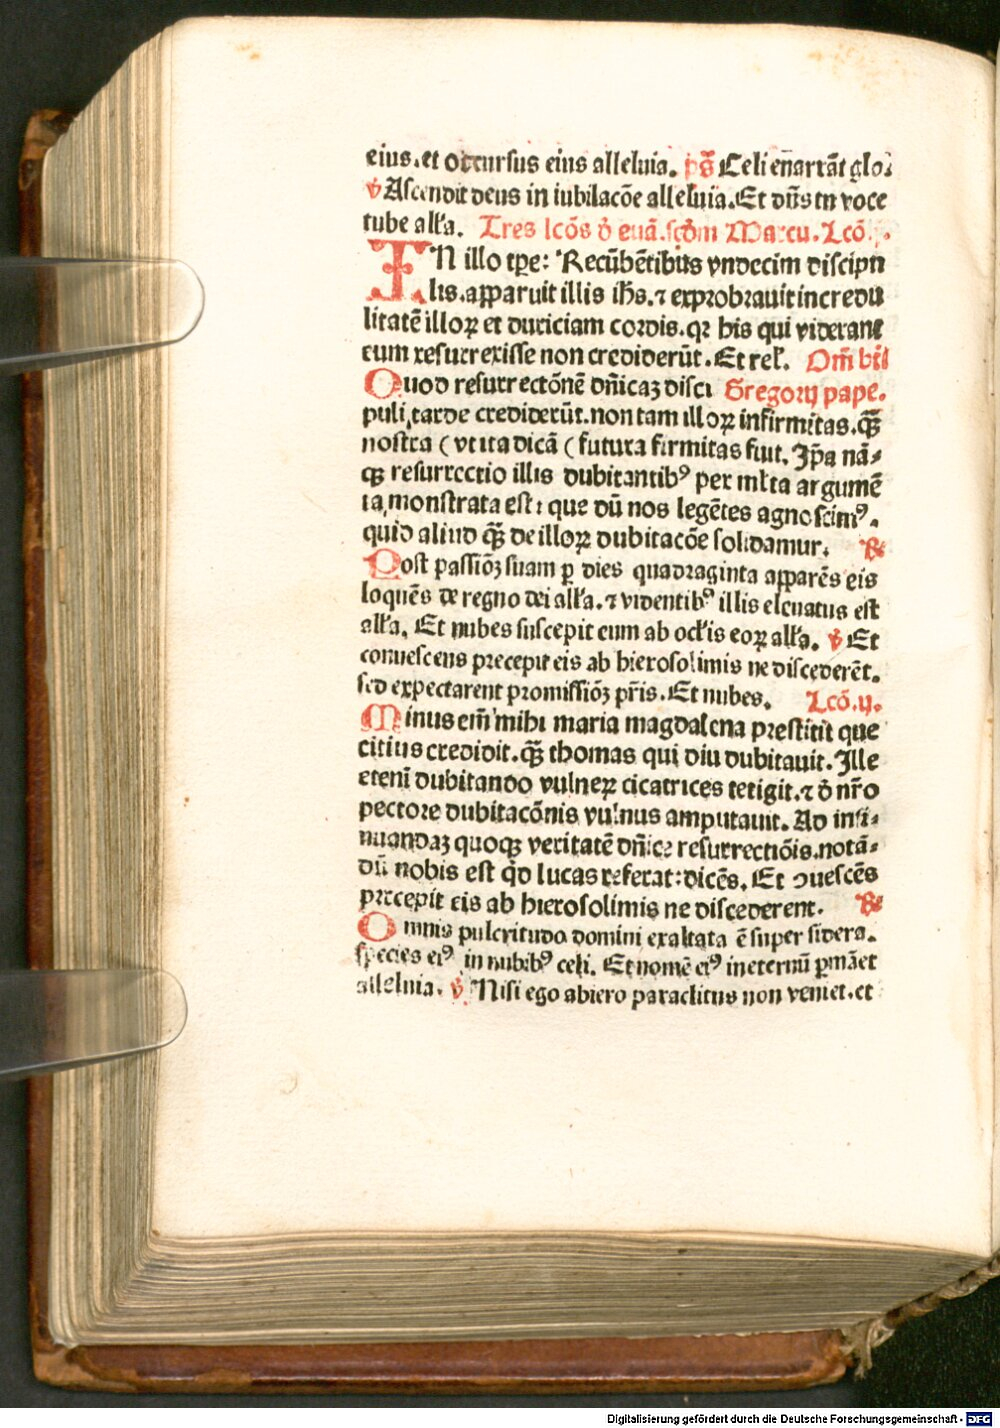 eius.et occursus eius alleluia. ps̄ Celi en̄arrāt glo⁊
v̄ Ascendit deus in iubilacōe alleluia. Et dn̄s in voce
tube alľa. Tres lcōs d̄ euā.scd̄m Marcu. Lcō.
IN illo tp̄e: Recūbētibus vndecim discipu
lis.apparuit illis ih̄s.⁊ exprobrauit incredu
litatē illoꝝ et duriciam cordis.qꝛ his qui viderant
eum resurrexisse non crediderūt. Et rel̕. Om̄ btī
Quod resurrectōnē dn̄icaꝫ disci Gregorij pape.
puli tarde crediderūt.non tam illoꝝ infirmitas.q̄ꝫ
nostra ( vt ita dicā ( futura firmitas fuit. Ip̄a nā⸗
qꝫ resurrectio illis dubitantibꝰ per mľta argumē
ta monstrata est: que dū nos legētes agnoscimꝰ.
quid aliud q̄ꝫ de illoꝝ dubitacōe solidamur. ℟
Post passiōꝫ suam p dies quadraginta apparēs eis
loquēs de regno dei alľa.⁊ videntibꝰ illis eleuatus est
alľa. Et nubes suscepit eum ab ocľis eoꝝ alľa. v̄ Et
conuescens precepit eis ab hierosolimis ne discederēt.
sed expectarent promissiōꝫ pr̄is. Et nubes. Lcō.ij.
Minus em̄ mihi maria magdalena prestitit que
citius credidit.q̄ꝫ thomas qui diu dubitauit. Ille
etenī dubitando vulneꝝ cicatrices tetigit.⁊ d̄ nr̄o
pectore dubitacōnis vulnus amputauit. Ad insi⸗
nuandaꝫ quoqꝫ veritatē dn̄ice resurrectiōis.notā⸗
dū nobis est qd̄ lucas referat: dicēs. Et ꝯuescēs
precepit eis ab hierosolimis ne discederent. ℟
Omnis pulcritudo domini exaltata ē super sidera.
species eiꝰ in nubibꝰ celi. Et nomē eiꝰ in eternū pmāet
alleluia. v̄ Nisi ego abiero paraclitus non veniet.et
Digitalisierung gefördert durch die Deutsche Forschungsgemeinschaft - DFG